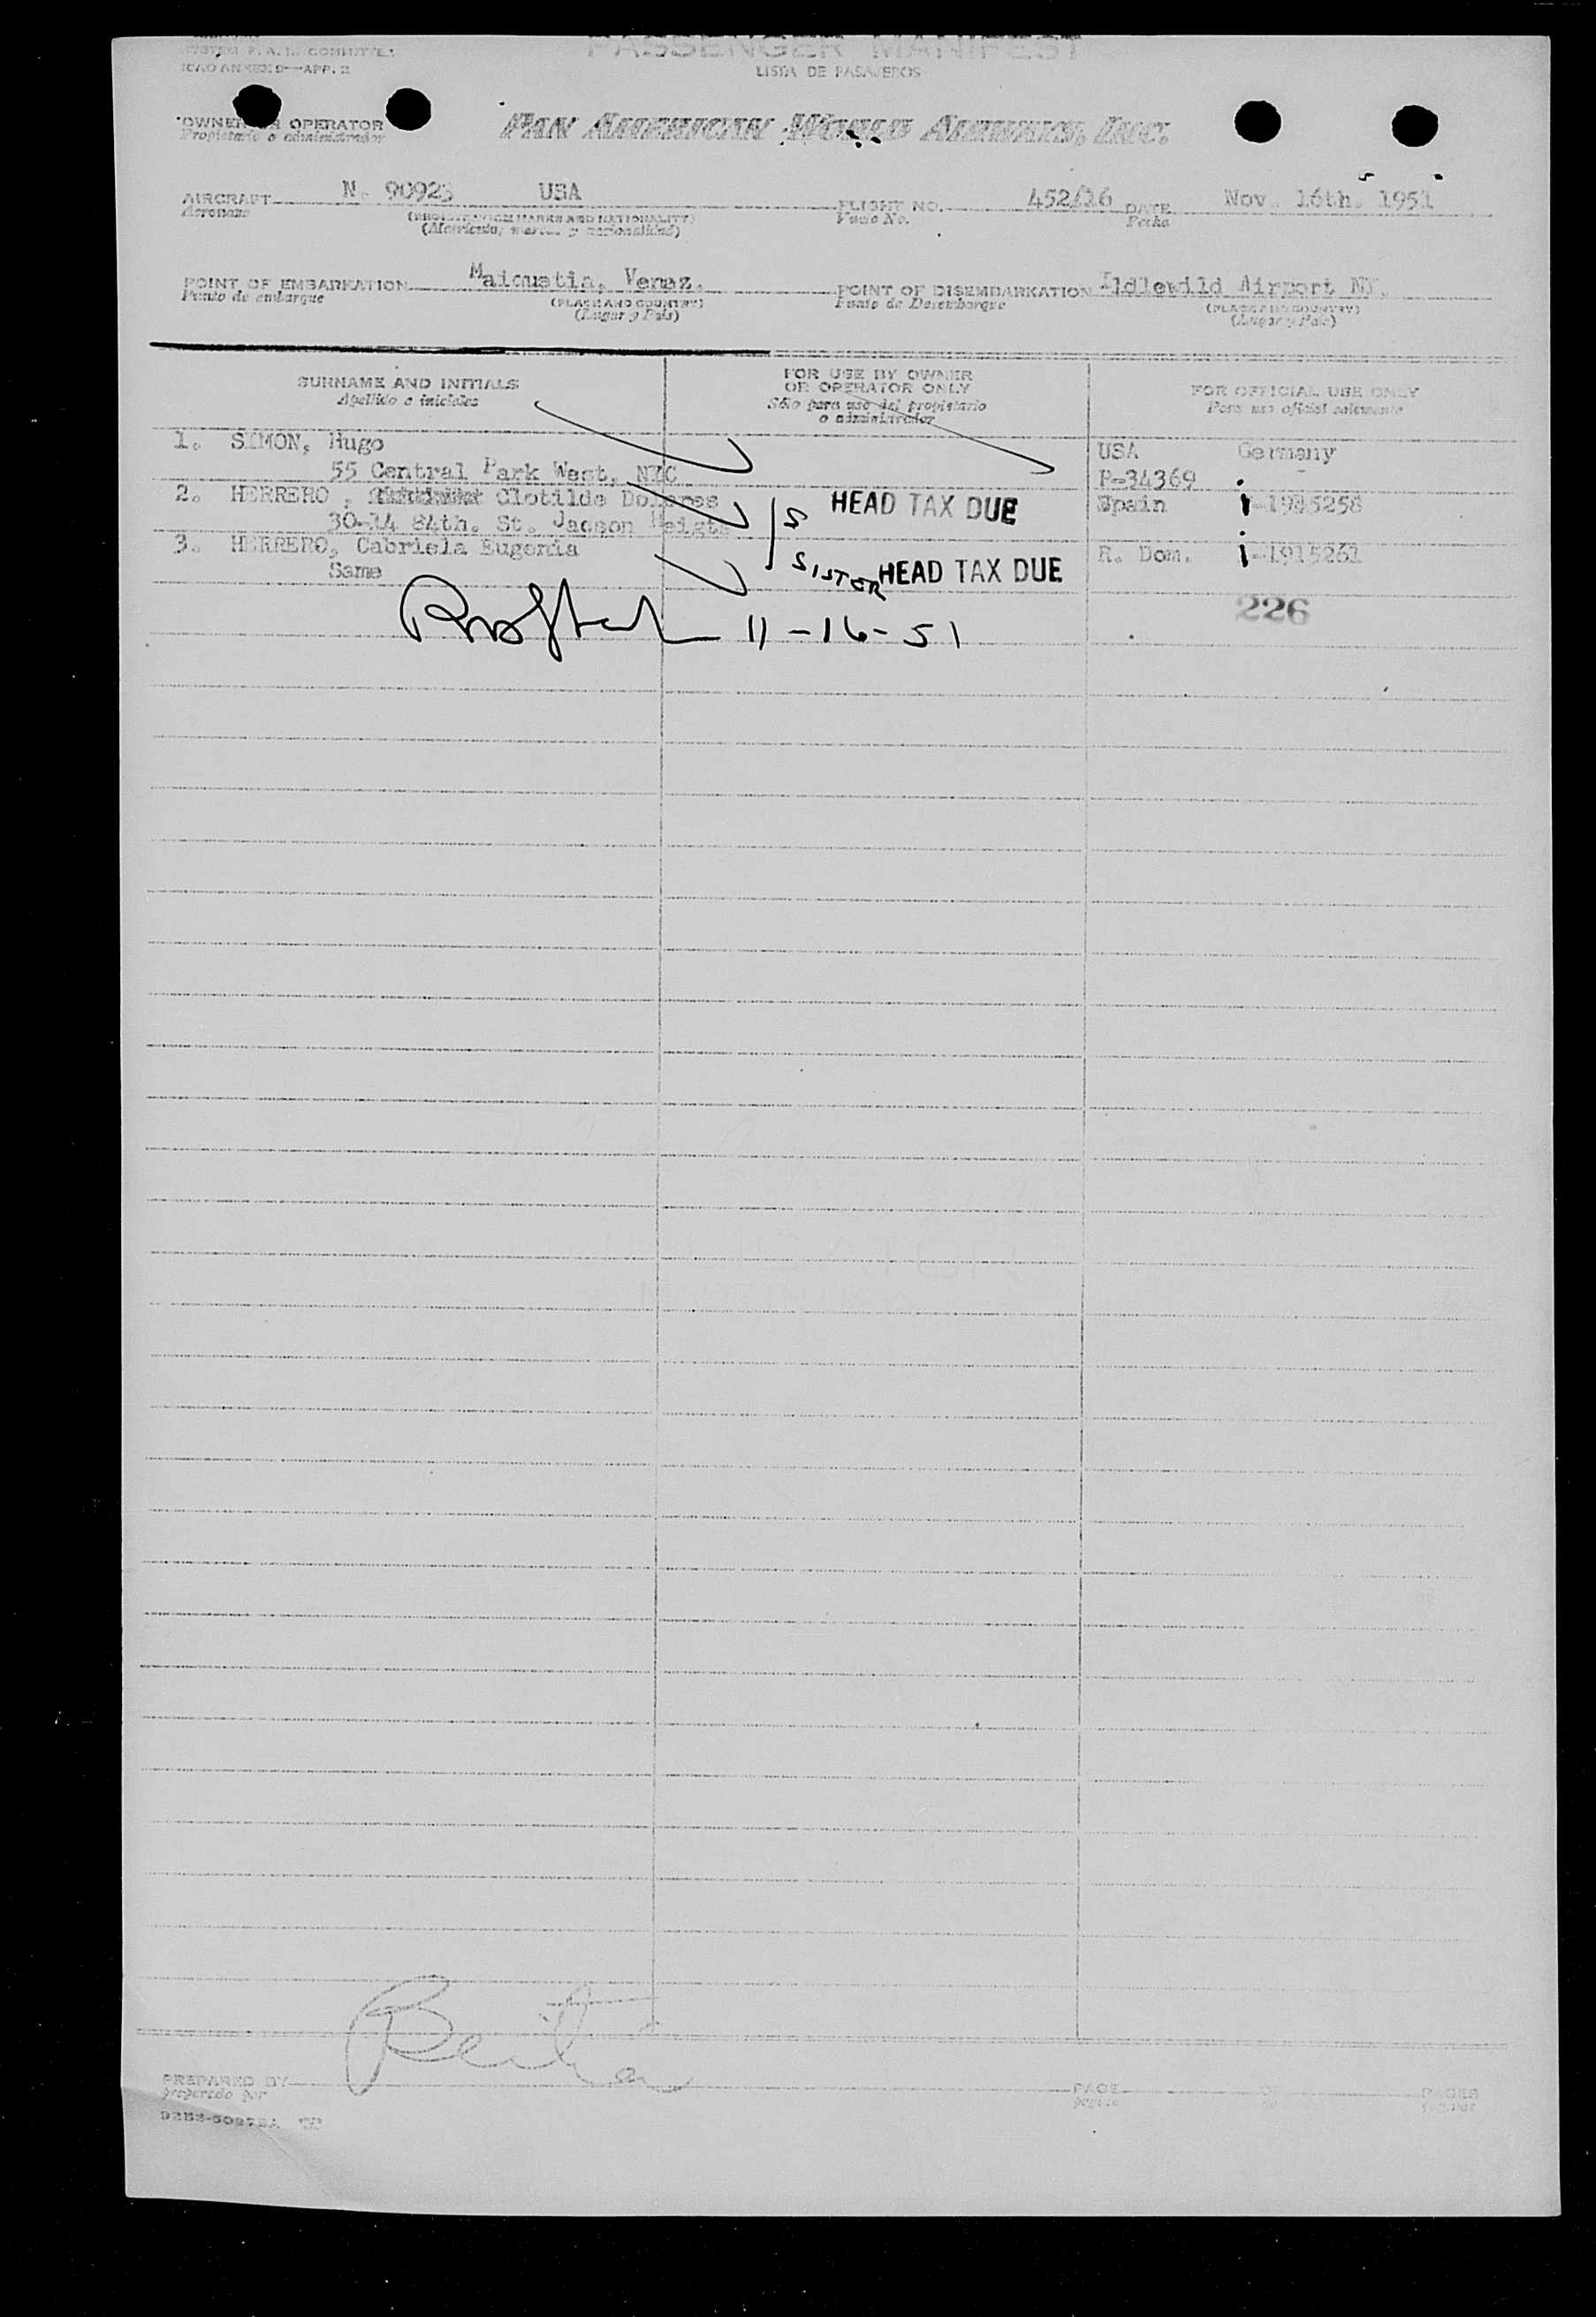 SYSTEM F.A.L. COMMITTEE
ICAO ANNEX 9—APP. 2
PASSENGER MANIFEST
LISTA DE PASAJEROS
OWNER OR OPERATOR
Propietario o administrador
PAN AMERICAN WORLD AIRWAYS, INC.
AIRCRAFT N. 90923 USA FLIGHT NO. 452/16 DATE Nov. 16th. 1951
Aeronave (REGISTRATION MARKS AND NATIONALITY) Vuelo No. Fecha
(Matrícula, marcas y nacionalidad)
POINT OF EMBARKATION Maiquetia, Venez. POINT OF DISEMBARKATION Idlewild Airport NY.
Punto de embarque (PLACE AND COUNTRY) Punto de Desembarque (PLACE AND COUNTRY)
(Lugar y País) (Lugar y País)
SURNAME AND INITIALS FOR USE BY OWNER OR OPERATOR ONLY FOR OFFICIAL USE ONLY
Apellido e iniciales Sólo para uso del propietario o administrador Para uso oficial solamente
1. SIMON, Hugo USA Germany
55 Central Park West, NYC P-34369
2. HERRERO, Clotilde Dolores S HEAD TAX DUE Spain
30-14 84th. St. Jacson Heigts
3. HERRERO, Gabriela Eugenia SISTER HEAD TAX DUE R. Dom. i-1915261
Same
226
11-16-51
PREPARED BY PAGE OF PAGES
preparado por